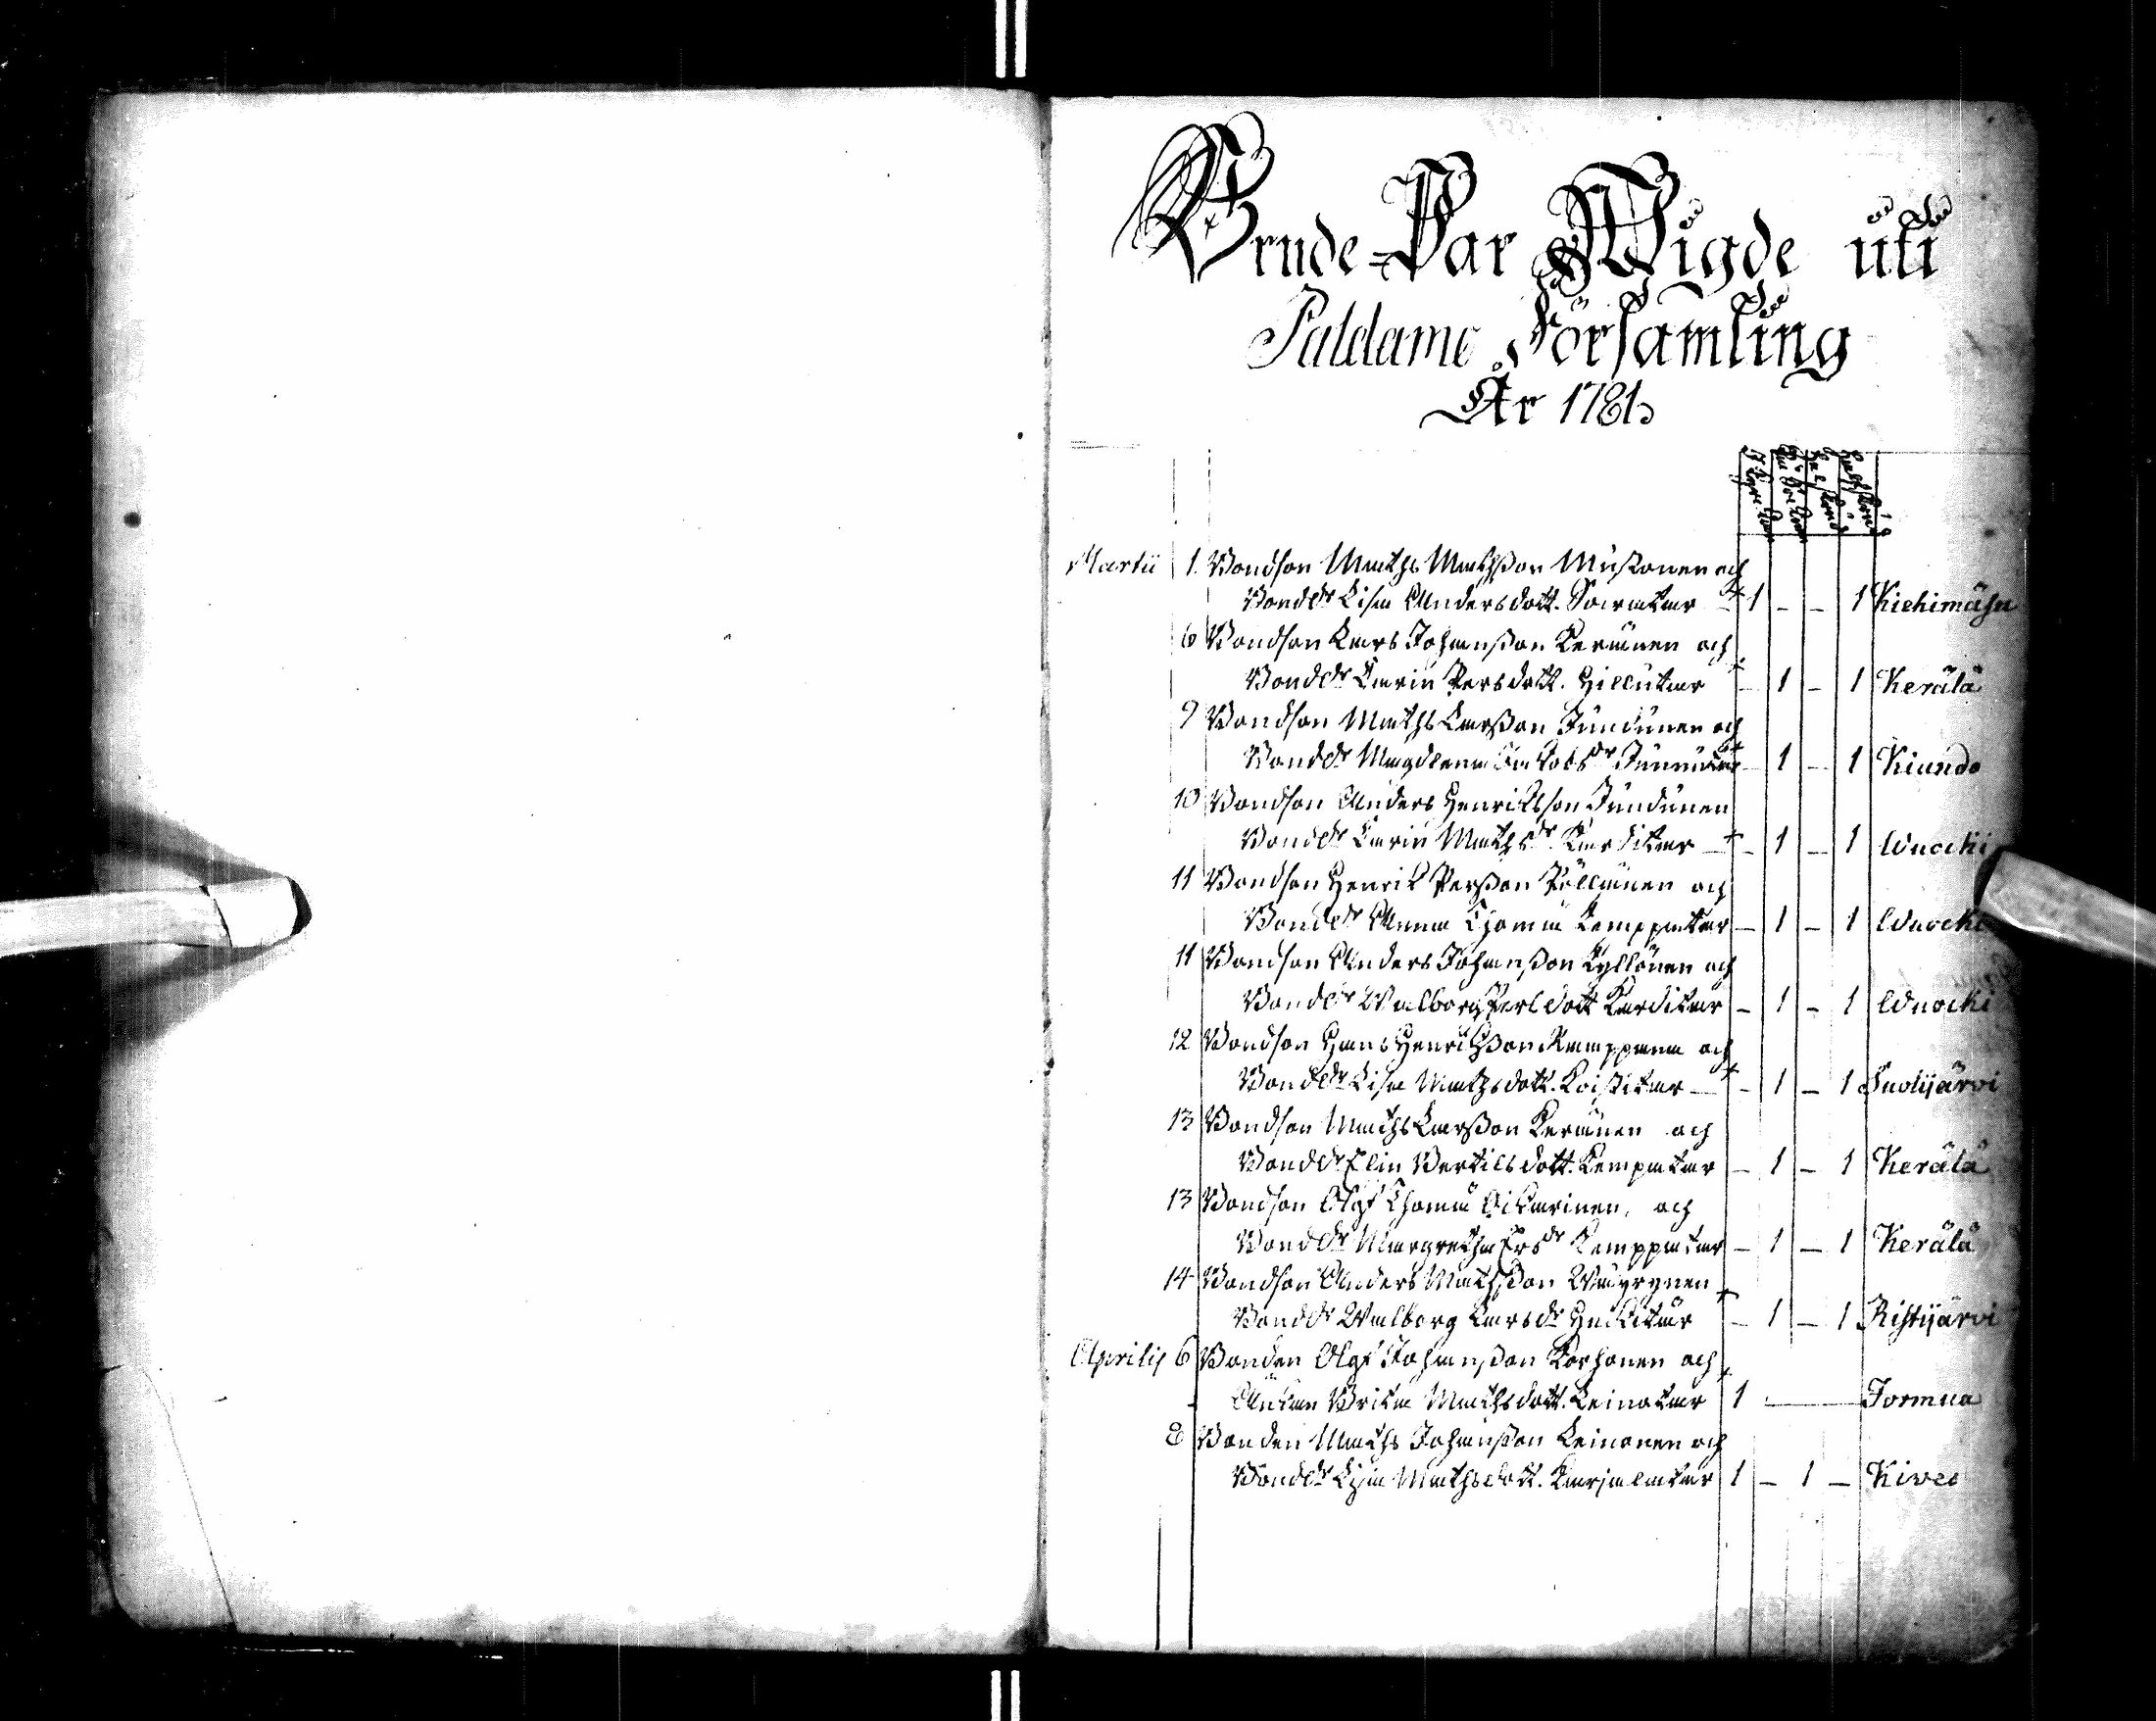 Brude-Par Wigde uti
Paldamo Församling
År 1781.
Martii 1. Bondson Maths Mathsson Mustonen och
Bondedr Lisa Andersdott. 1 - - 1 Kiehimäsu
6 Bondson Lars Johansson Keränen och
Bondedr Carin Persdott. Hillutar - 1 - 1 Kerälä
9 Bondson Maths Larsson Jundunen och
Bondedr Magdlena Jacobsdr - 1 - 1 Kiundo
10 Bondson Anders Henrikson Jundunen
Bondedr Carin Mathsdr Karditar - 1 - 1 Wuocki
11 Bondson Henrik Persson Pöllänen och
Bondedr Anna Thoma Kemppatar - 1 - 1 Wuocki
11 Bondson Anders Johansson Kyllönen och
Bondedr Walborg Persdott Karditar - 1 - 1 Wuocki
12 Bondson Hans Henriksson och
Bondedr Lisa Mathsdott. Koistitar - 1 - 1 Suolijärvi
13 Bondson Maths Larsson Keränen och
Bondedr Elin Bertilsdott. Kempatar - 1 - 1 Kerälä
13 Bondson Olof Thoma Oikarinen, och
Bondedr Margretha Ersdr Kemppatar - 1 - 1 Kerälä
14 Bondson Anders Mathsson Wäyrynen
Bondedr Walborg Larsdr - 1 - 1 Ristijärvi
Aprilis 6 Bonden Olof Johansson Korhonen och
Änkan Brita Mathsdott. Leinotar 1 - Jormua
8 Bonden Maths Johansson Leinonen och
Bondedr Lisa Mathsdott. Karjalatar 1 - 1 - Kives